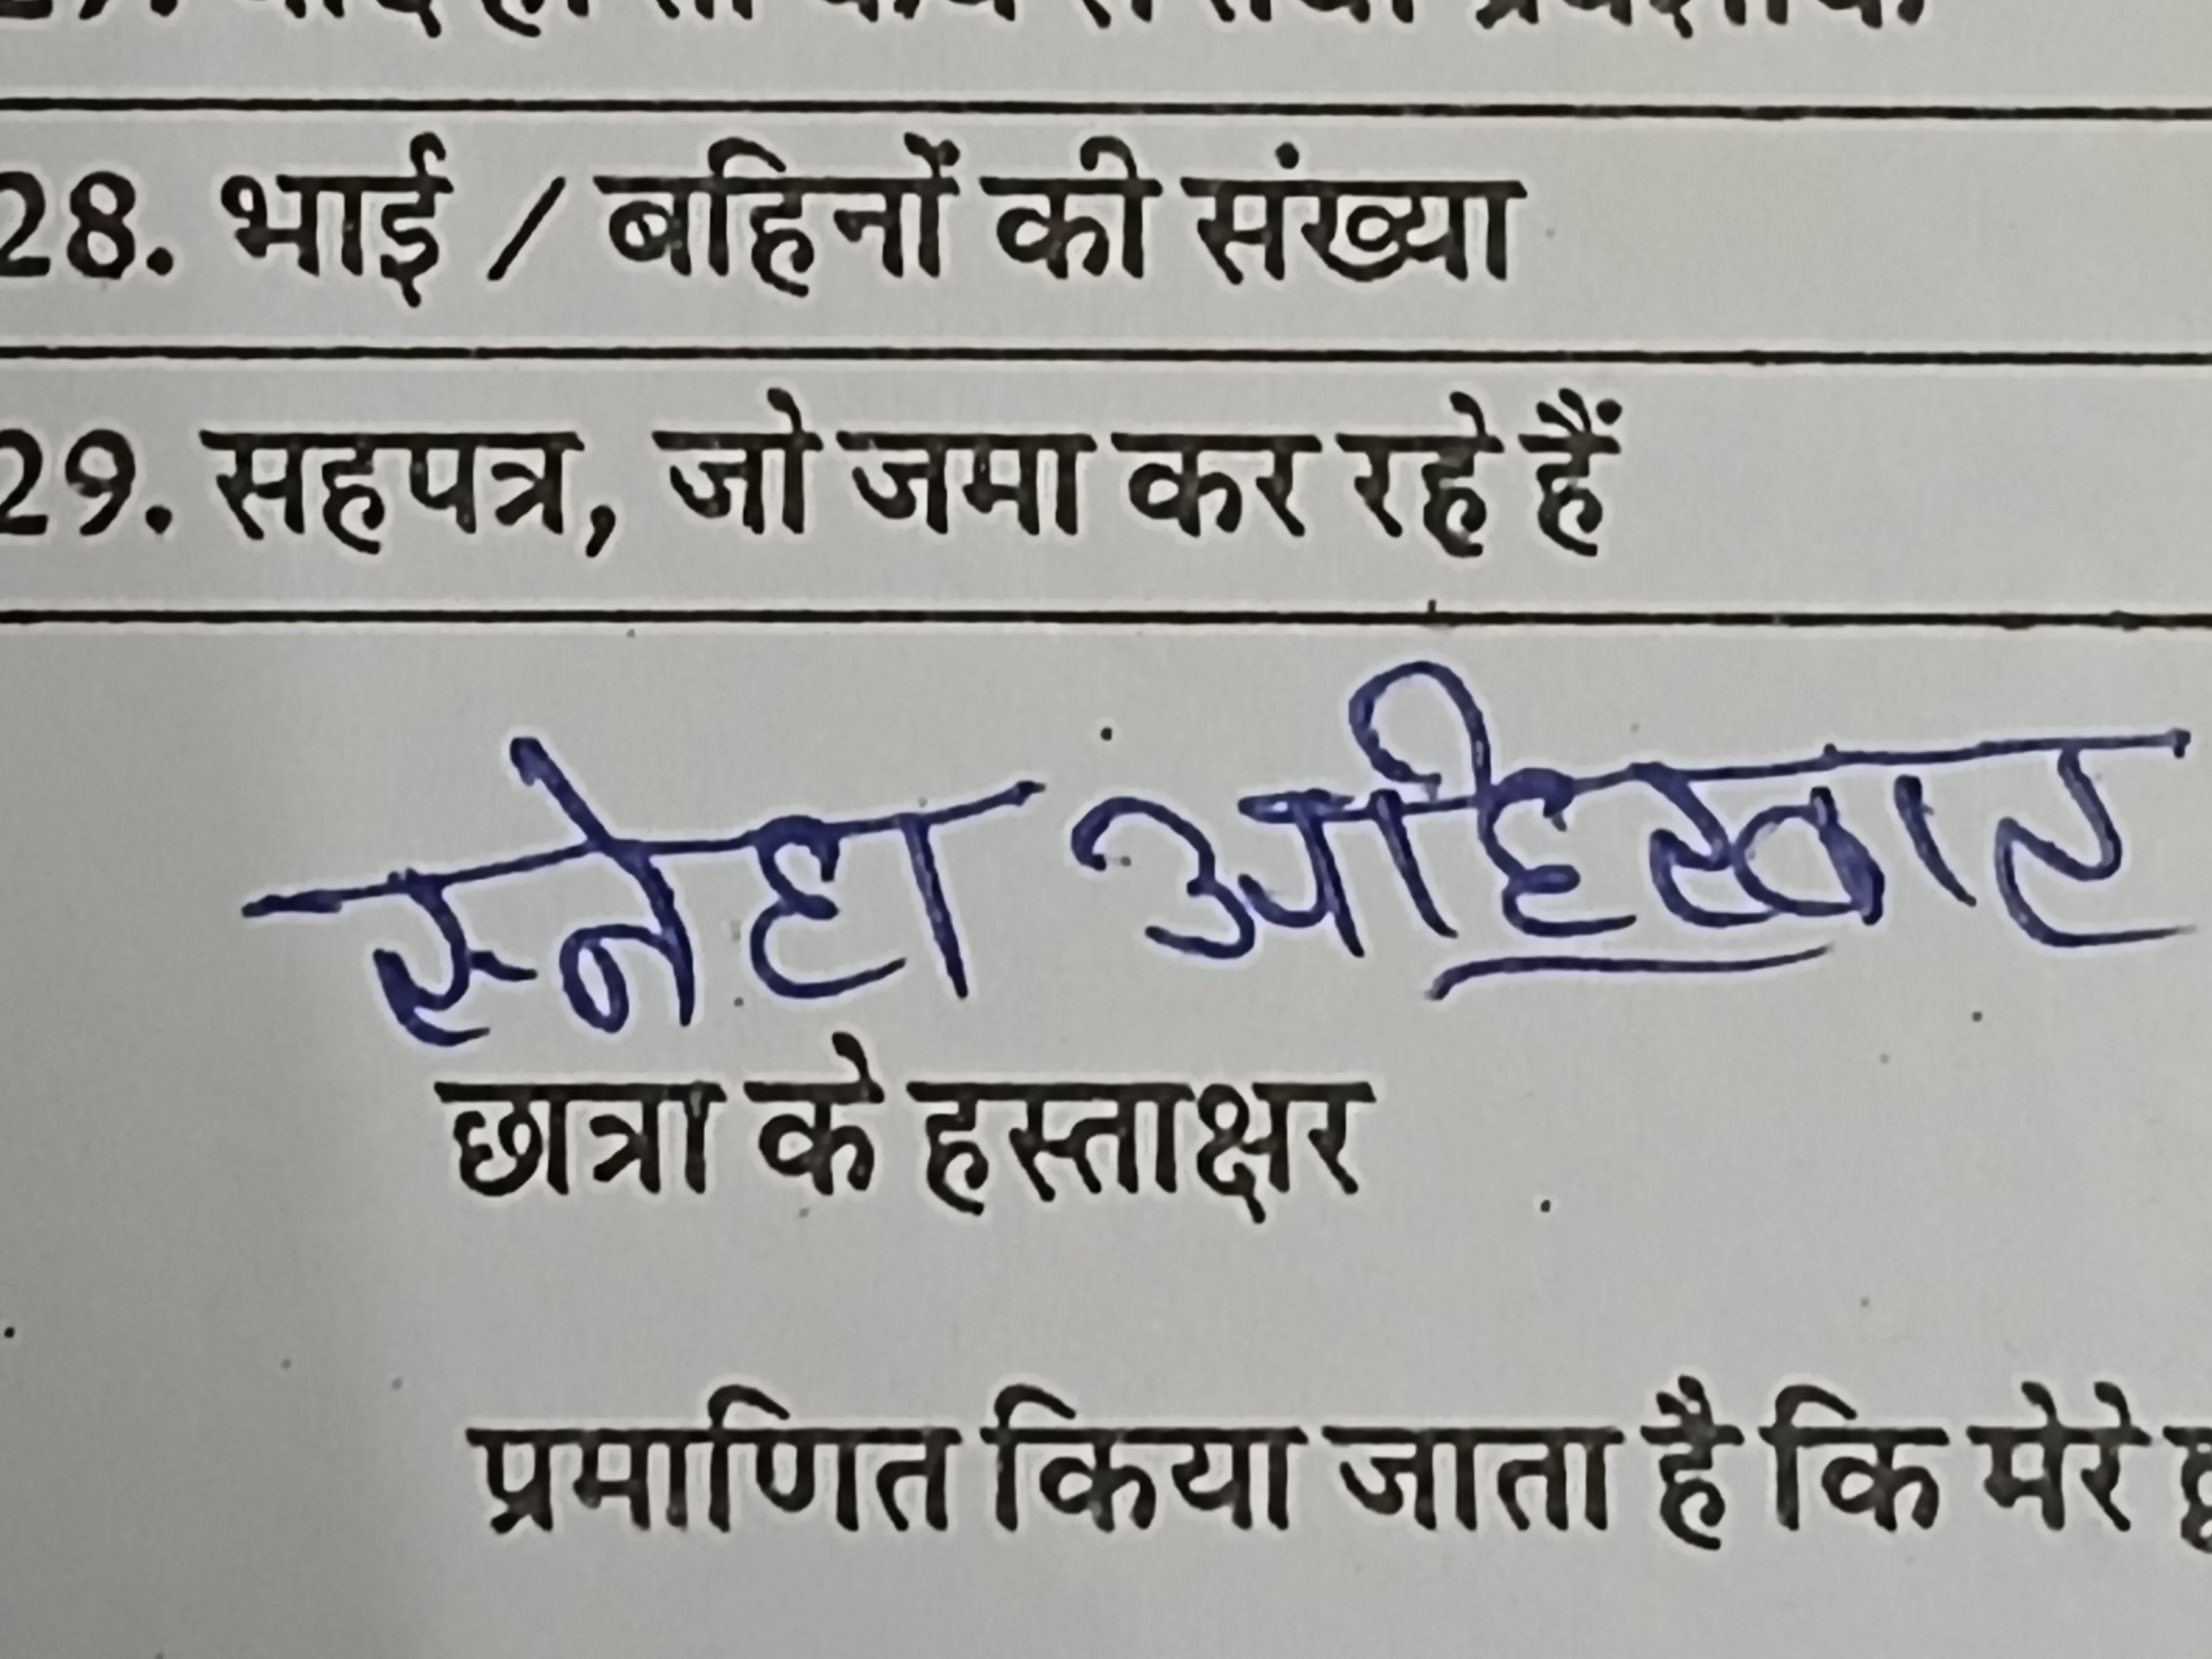 28. भाई / बहिनों की संख्या
29. सहपत्र, जो जमा कर रहे हैं
स्नेहा अहिरवार
छात्रा के हस्ताक्षर
प्रमाणित किया जाता है कि मेरे